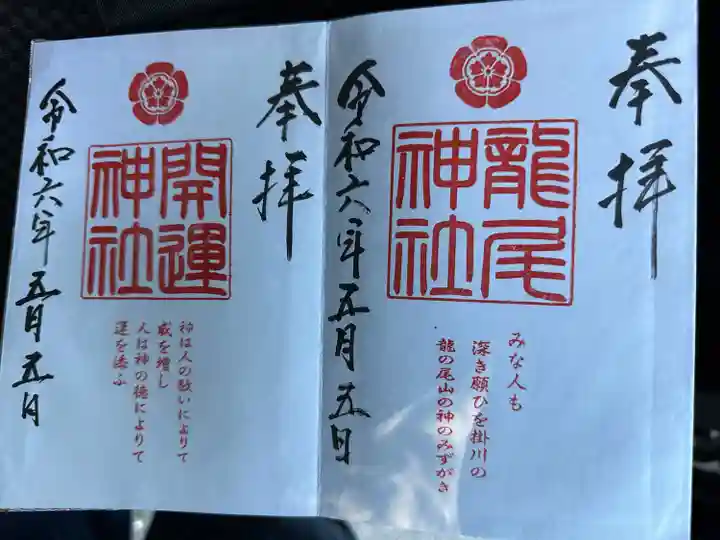 奉拝
龍尾
神社
みな人も
深き願ひを掛川の
龍の尾山の神のみずがき
令和六年五月五日
奉拝
開運
神社
神は人の敬いによりて
威を増し
人は神の徳によりて
運を添ふ
令和六年五月五日